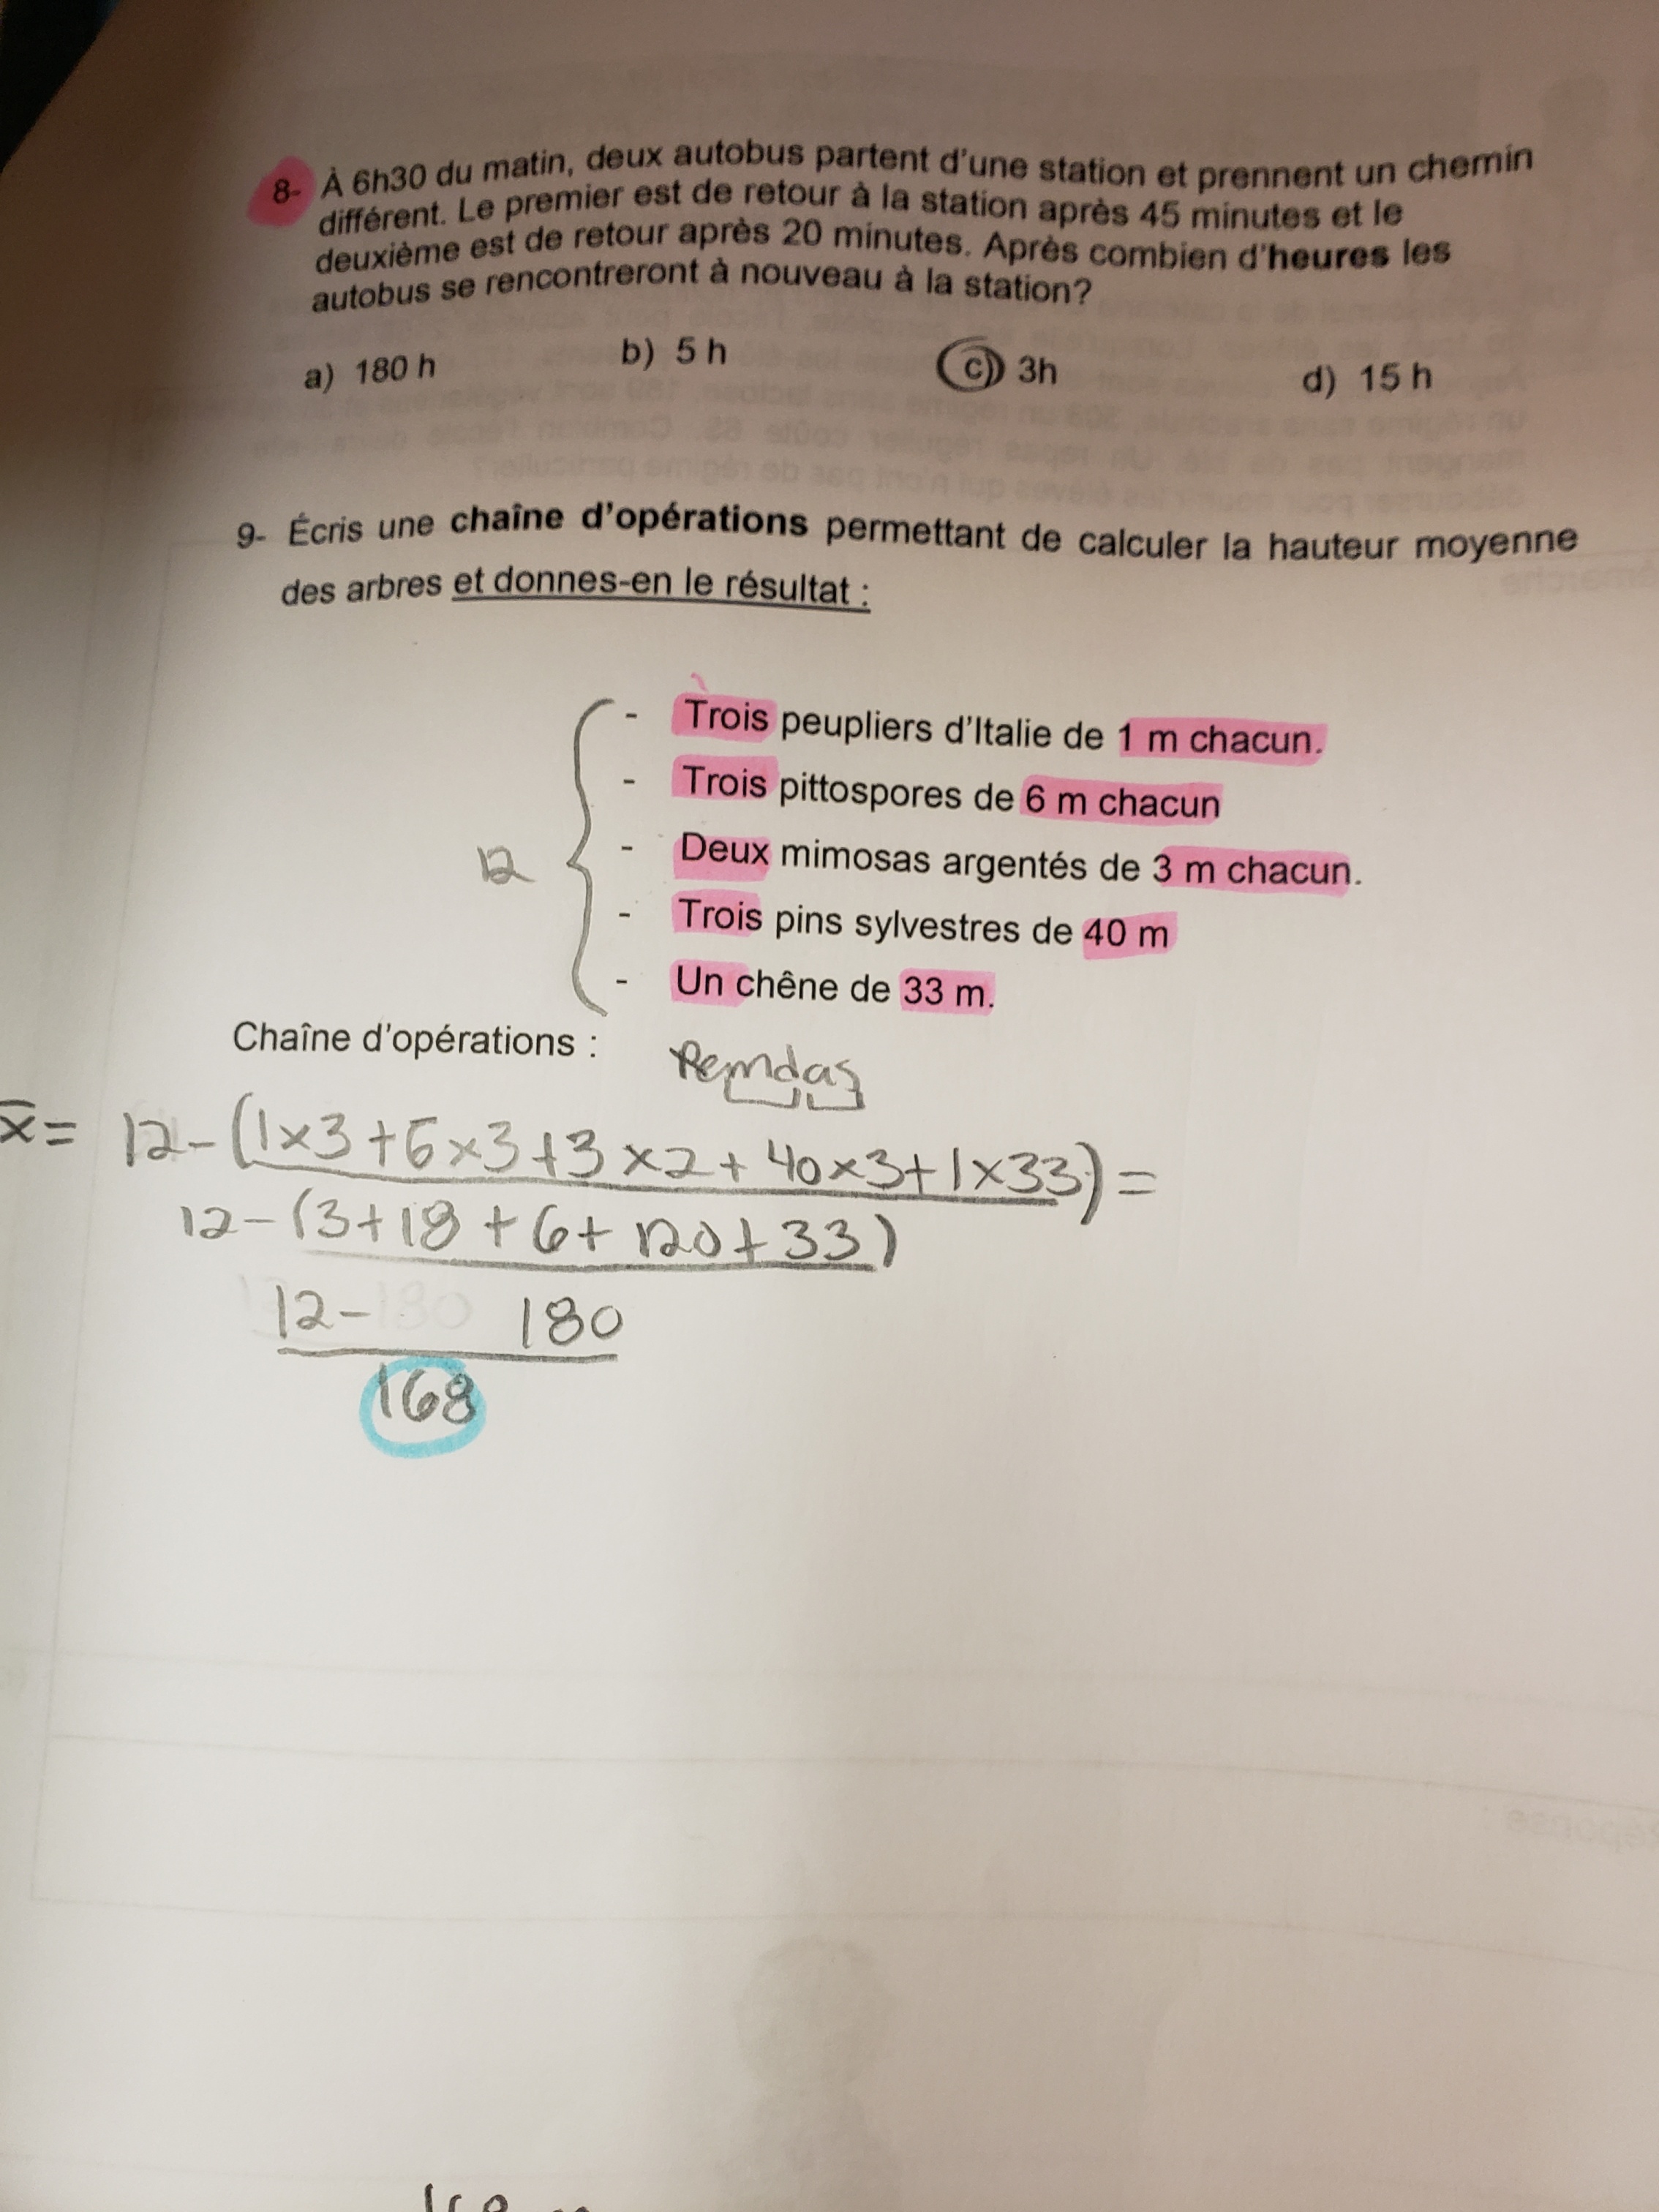 8- À 6h30 du matin, deux autobus partent d'une station et prennent un chemin
différent. Le premier est de retour à la station après 45 minutes et le
deuxième est de retour après 20 minutes. Après combien d'heures les
autobus se rencontreront à nouveau à la station?
a) 180 h b) 5 h c) 3h d) 15 h
9- Écris une chaîne d'opérations permettant de calculer la hauteur moyenne
des arbres et donnes-en le résultat :
- Trois peupliers d'Italie de 1 m chacun.
- Trois pittospores de 6 m chacun
12 - Deux mimosas argentés de 3 m chacun.
- Trois pins sylvestres de 40 m
- Un chêne de 33 m.
Chaîne d'opérations : Pemdas
x̄ = 12-(1x3+6x3+3x2+40x3+1x33)=
12-(3+18+6+120+33)
12- 180
168